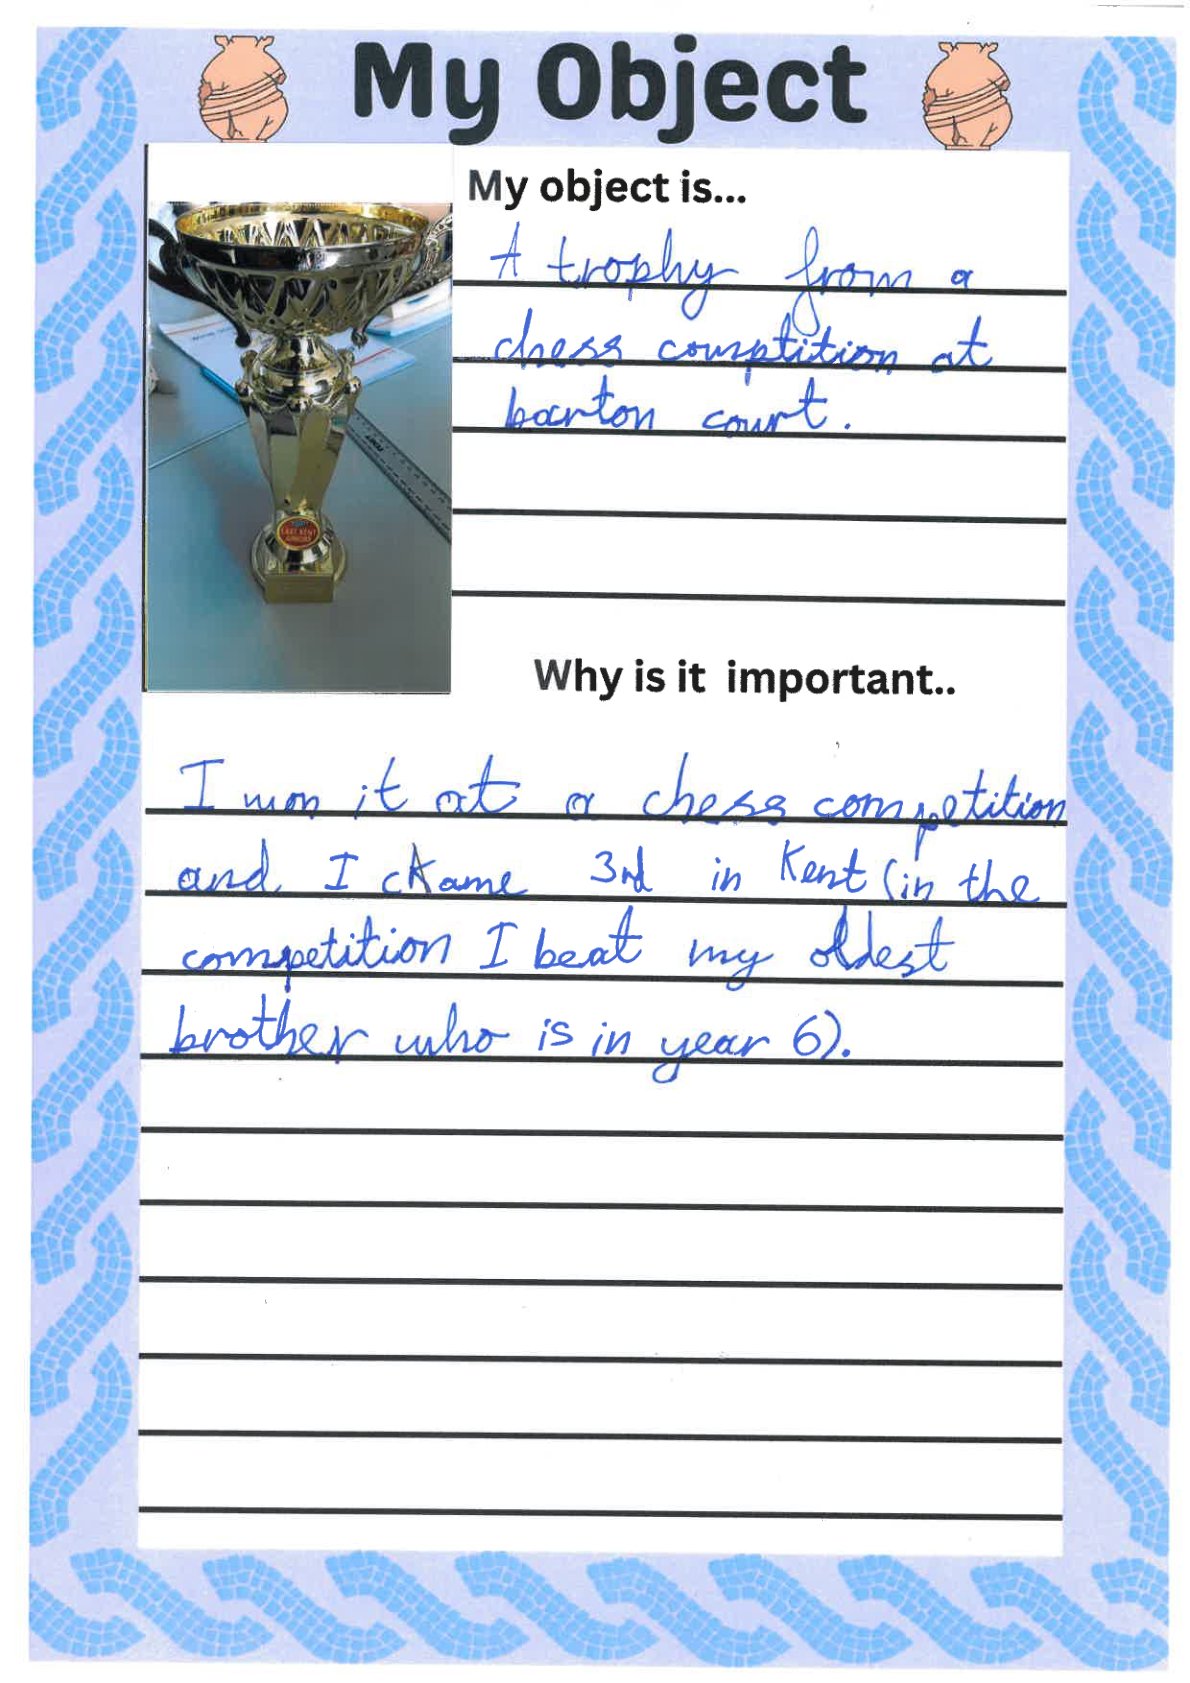 My Object
My object is...
A trophy from a
chess comptition at
barton court.
EAST KENT
JUNIORS
Why is it important..
I won it at a chess competition
and I ckame 3rd in Kent (in the
competition I beat my oldest
brother who is in year 6).